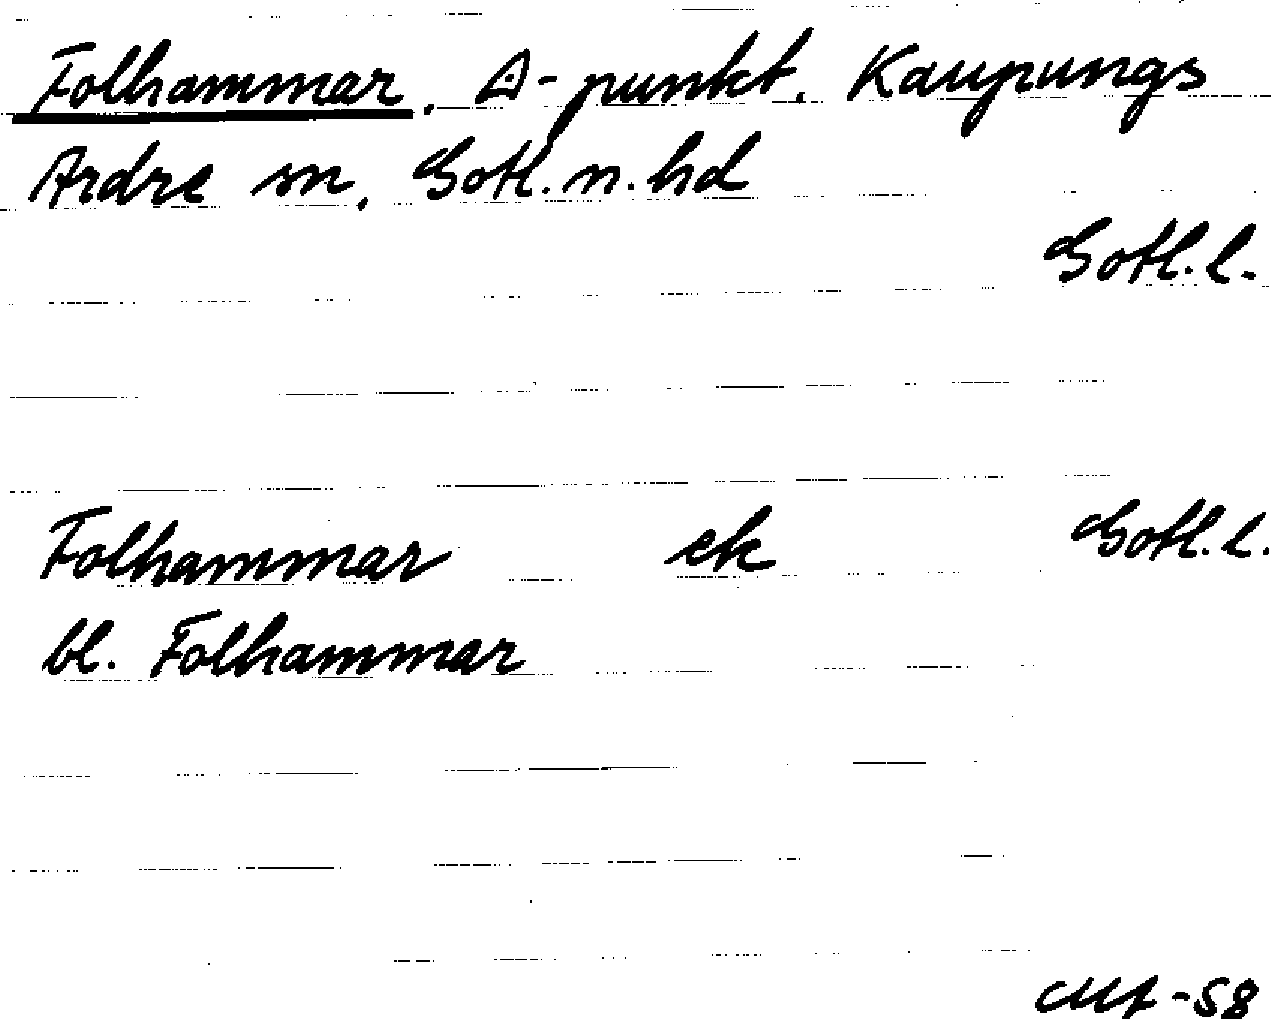 Folhammar. Δ-punkt. Kaupungs
Ardre sn. Gotl. n. hd
Gotl. l.
Folhammar ek Gotl. l.
bl. Folhammar
-58